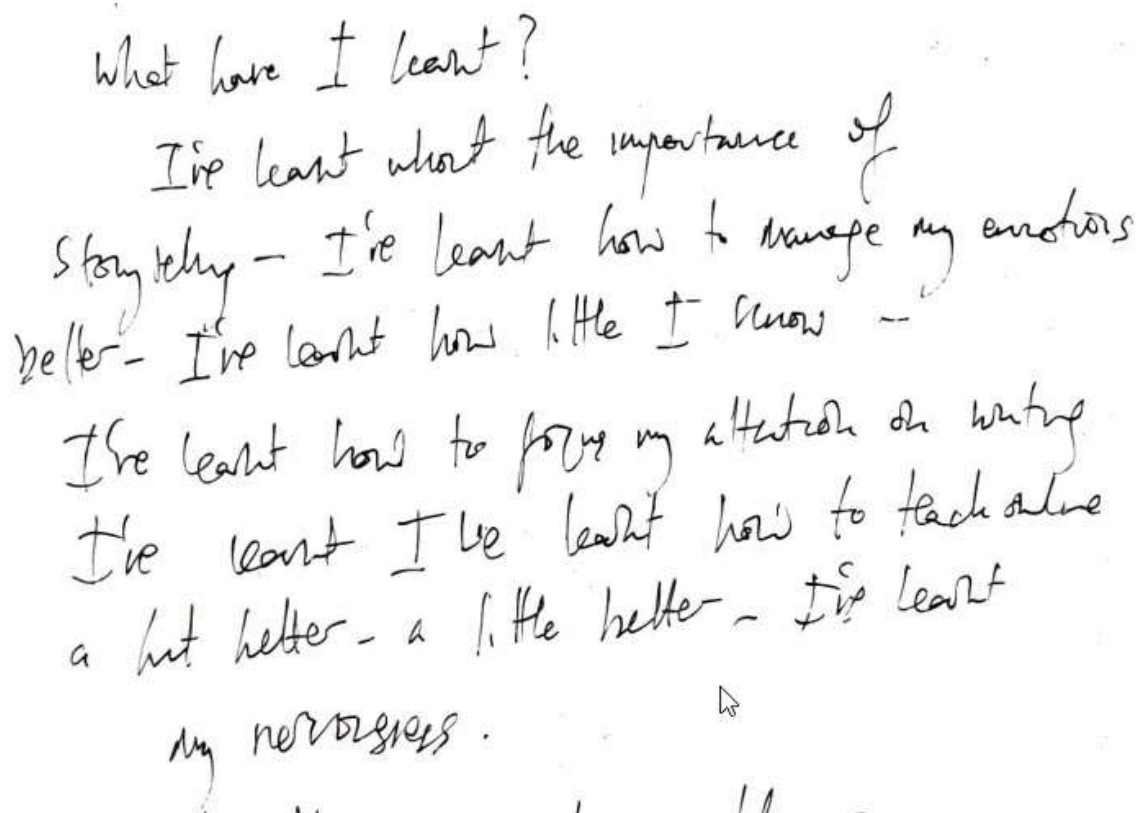 What have I learnt?
I've learnt what the importance of
Storytelling - I've learnt how to manage my emotions
better - I've learnt how little I know --
I've learnt how to focus my attention on writing
I've learnt I've learnt how to teach online
a bit better - a little better - I've learnt
my nervousness.